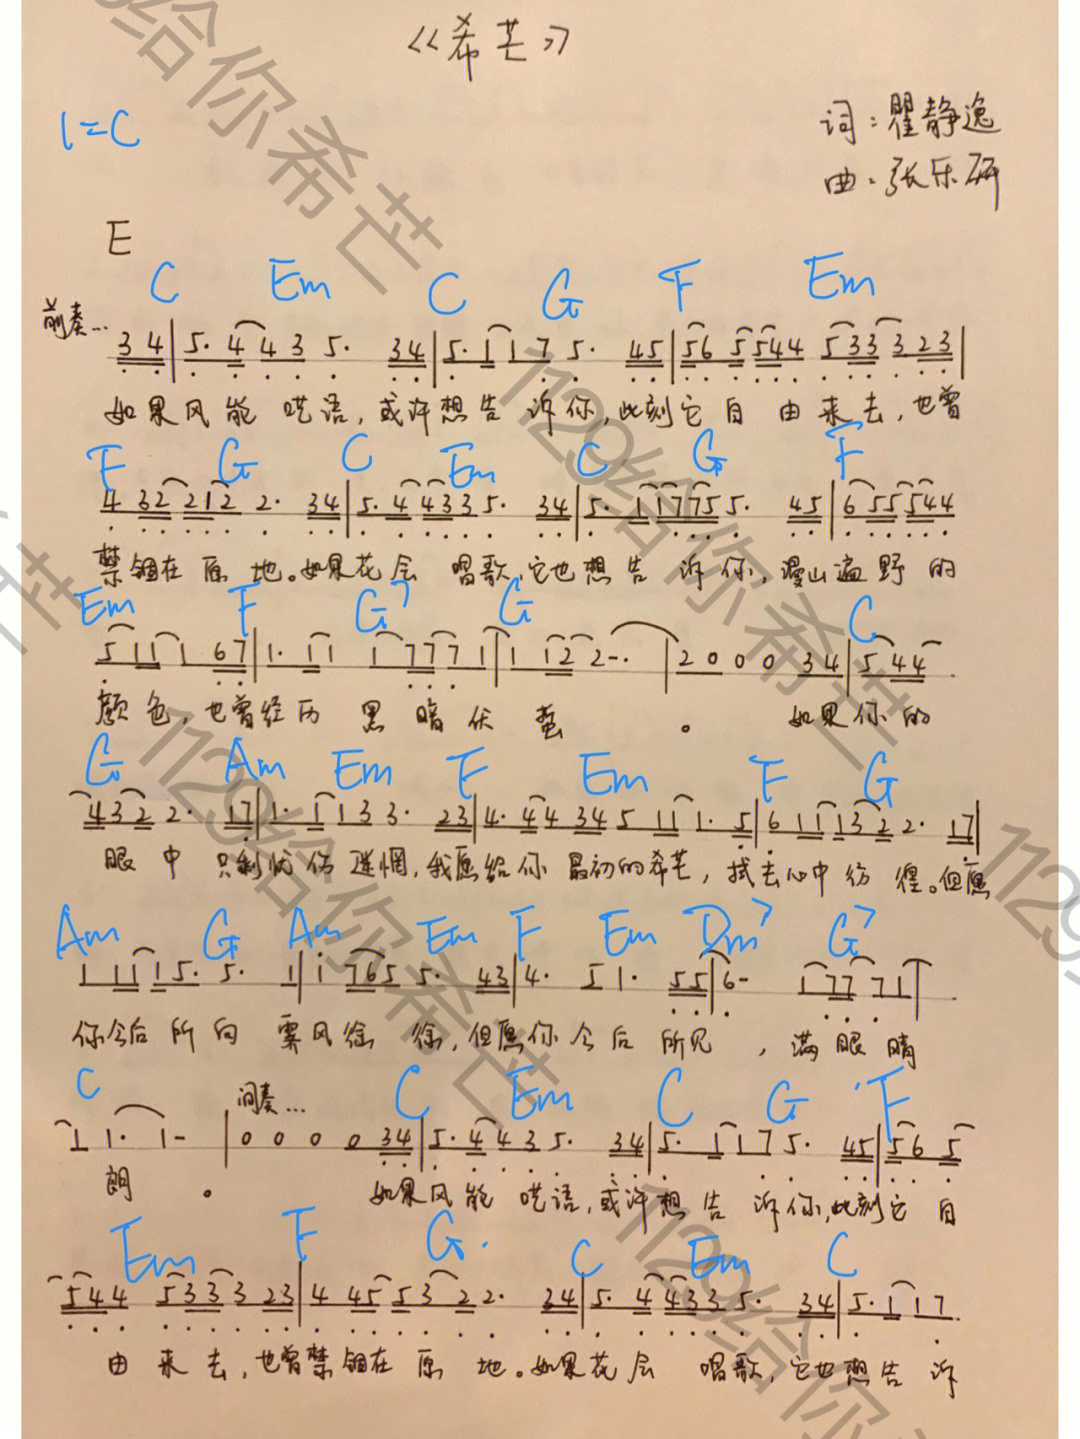 《希芒》
1=C
词:瞿静逸
曲:张乐研
E
C Em C G F Em
前奏...
3 4 | 5· 4 4 3 5· 3 4 | 5· 1 1 7 5· 4 5 | 5 6 5 5 4 4 5 3 3 3 2 3 |
如果风能 呓语,或许想告 诉你,此刻它自 由来去,也曾
F G C Em C G F
4 3 2 2 1 2 2· 3 4 | 5· 4 4 3 3 5· 3 4 | 5· 1 1 7 7 5 5· 4 5 | 6 5 5 5 4 4
禁锢在 原 地。如果花会 唱歌,它也想告 诉你,漫山遍野的
Em F G7 G C
5 1 1 1 6 7 | 1· 1 1 1 7 7 7 1 | 1 1 2 2-· | 2 0 0 0 3 4 | 5 4 4
颜色,也曾经历 黑 暗 伏 蛰 。 如果你的
G Am Em F Em F G
4 3 2 2· 1 7 | 1· 1 1 3 3· 2 3 | 4· 4 4 3 4 5 1 1 1· 5 | 6 1 1 1 3 2 2· 1 7 |
眼中 只剩忧伤 迷惘,我愿给你 最初的希芒,拭去心中彷 徨。但愿
Am G Am Em F Em Dm7 G7
1 1 1 1 5· 5· 1 | i 7 6 5 5· 4 3 | 4· 5 1· 5 5 | 6- 1 7 7 7 1 |
你今后 所向 霁风徐 徐,但愿你今后 所见 ,满 眼 晴
C 间奏... C Em C G F
1 1· 1- | 0 0 0 0 3 4 | 5· 4 4 3 5· 3 4 | 5· 1 1 7 5· 4 5 | 5 6 5
朗 。 如果风能 呓语,或许想告 诉你,此刻它自
Em F G C Em C
5 4 4 5 3 3 3 2 3 | 4 4 5 5 3 2 2· 3 4 | 5· 4 4 3 3 5· 3 4 | 5· 1 1 7
由来去,也曾禁锢在 原 地。如果花会 唱歌,它也想告 诉
1129给你希芒